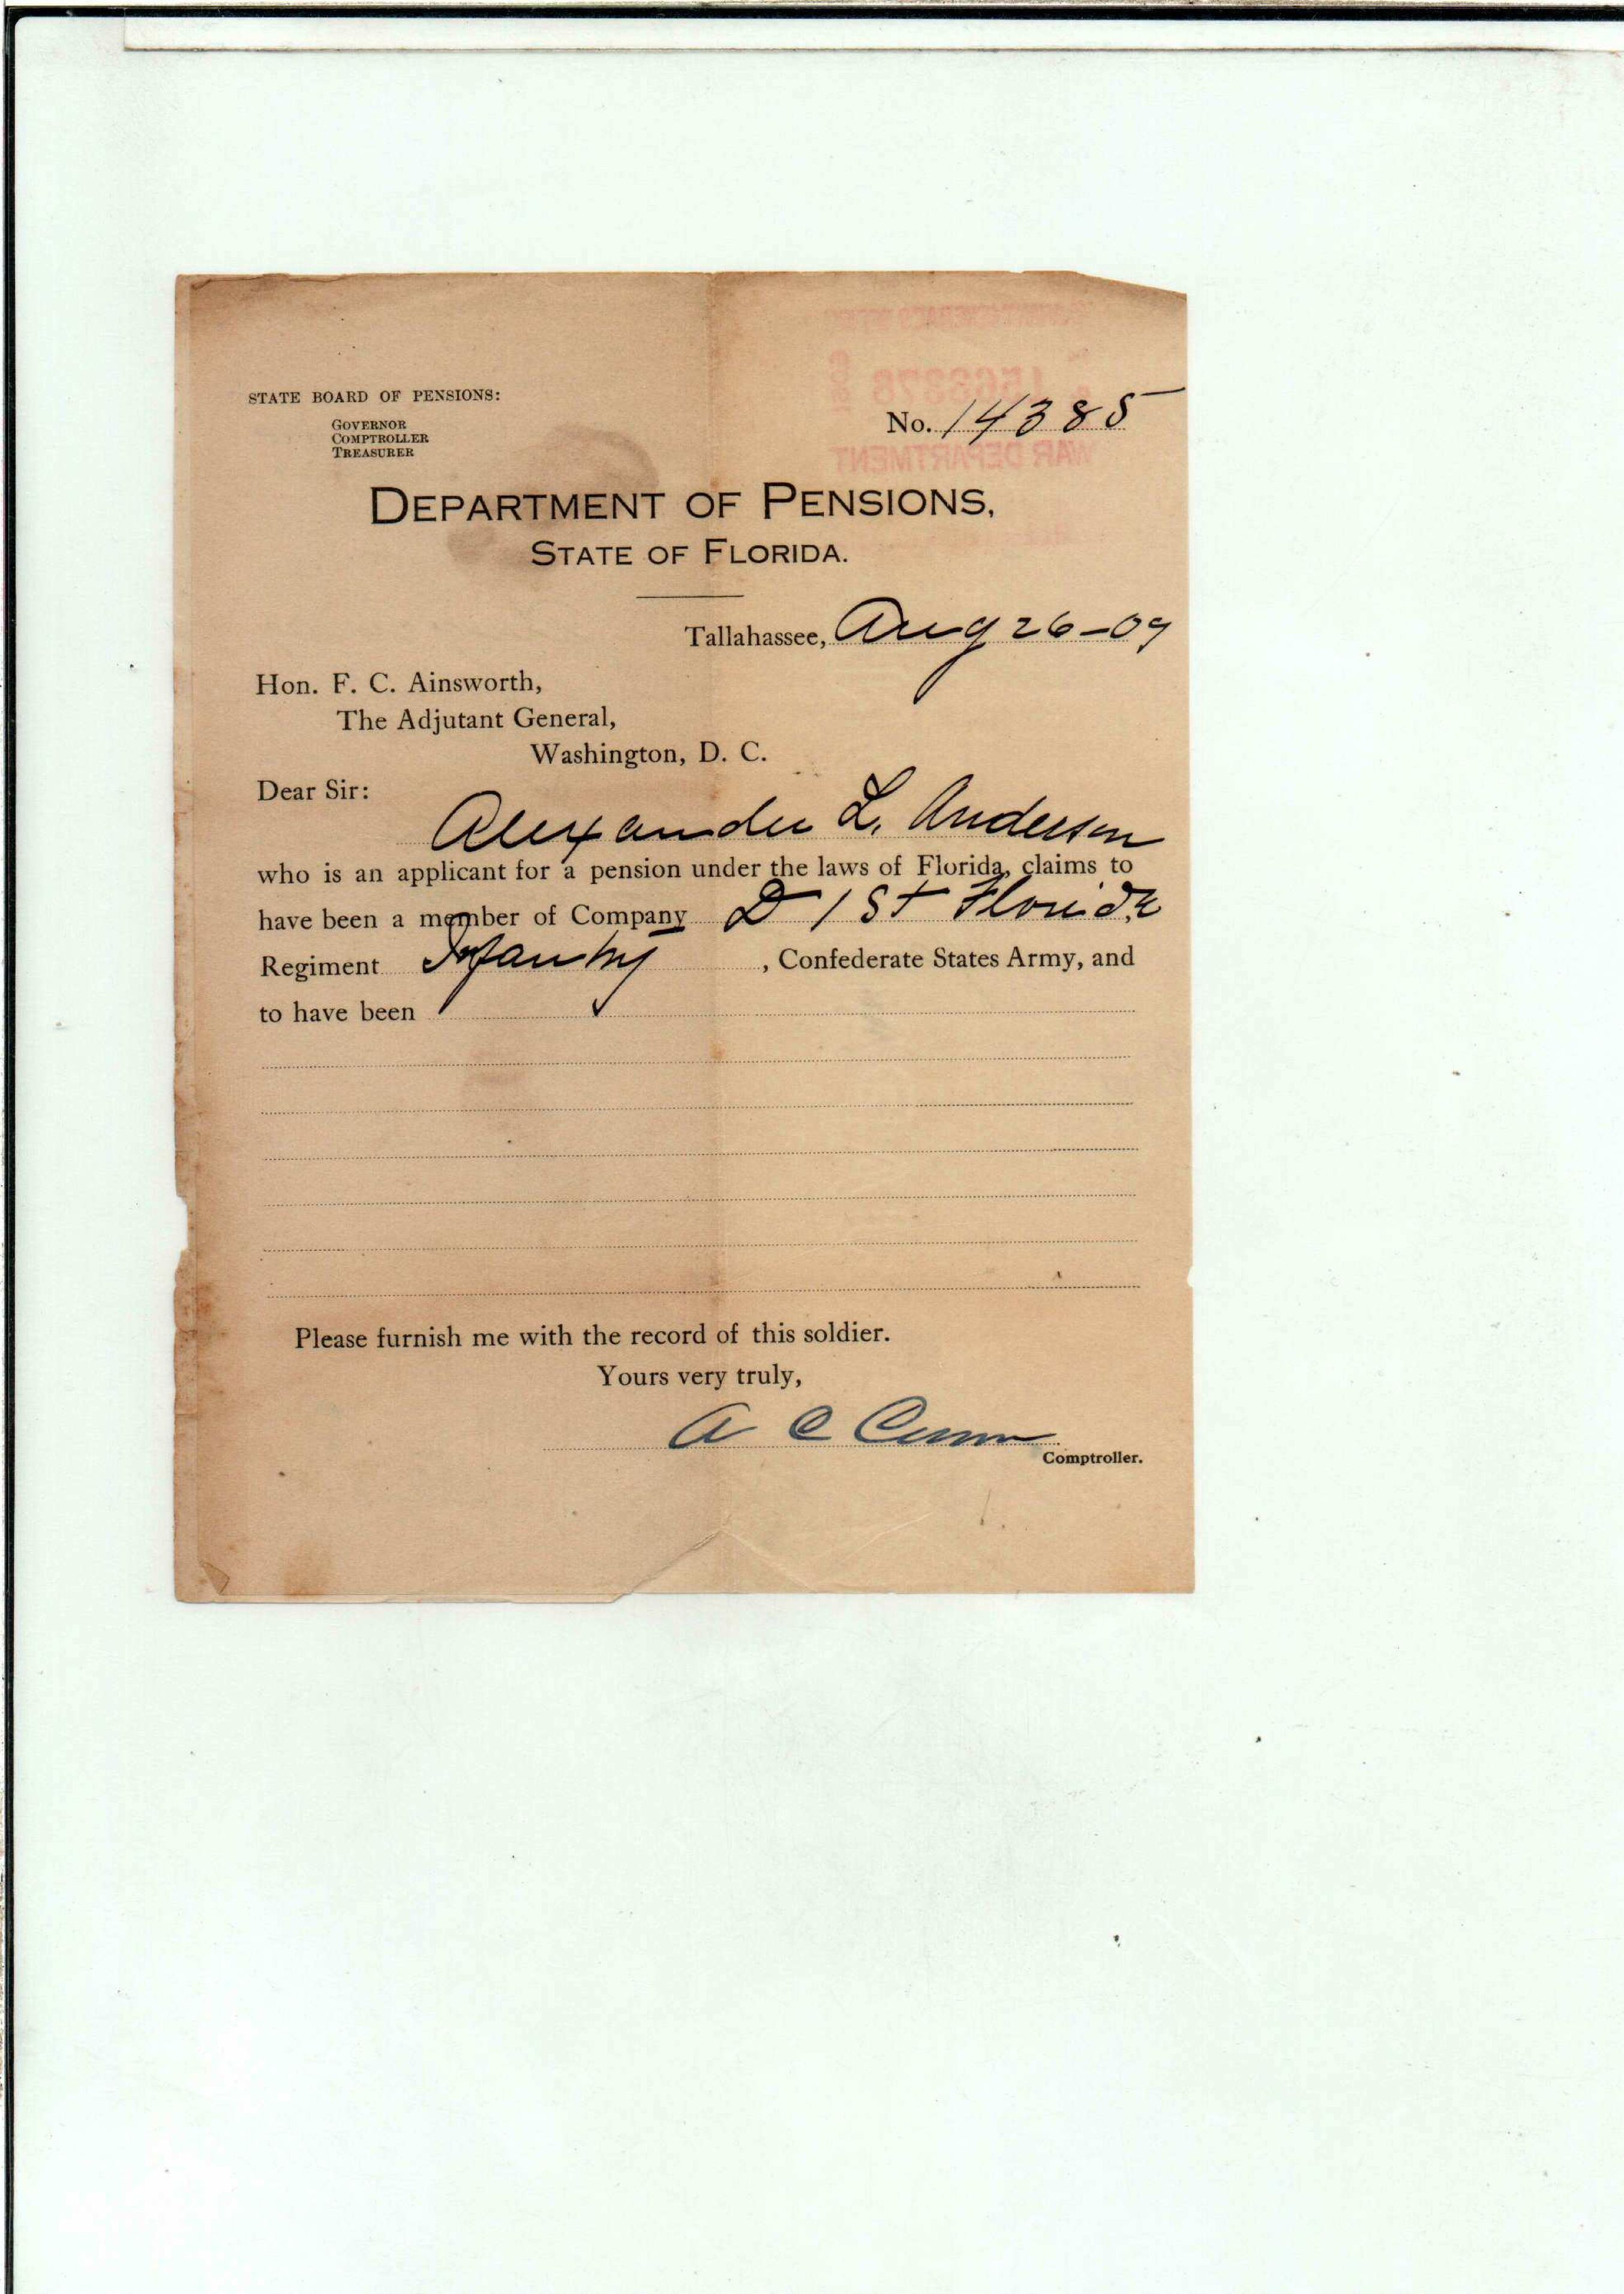 STATE BOARD OF PENSIONS:
GOVERNOR
COMPTROLLER
TREASURER
1563378
No. 14385
WAR DEPARTMENT
DEPARTMENT OF PENSIONS,
STATE OF FLORIDA.
Tallahassee, Aug 26-09
Hon. F. C. Ainsworth,
The Adjutant General,
Washington, D. C.
Dear Sir:
Alexander L. Anderson
who is an applicant for a pension under the laws of Florida, claims to
have been a member of Company D 1st Florida
Regiment Infantry, Confederate States Army, and
to have been
Please furnish me with the record of this soldier.
Yours very truly,
A C Croom
Comptroller.